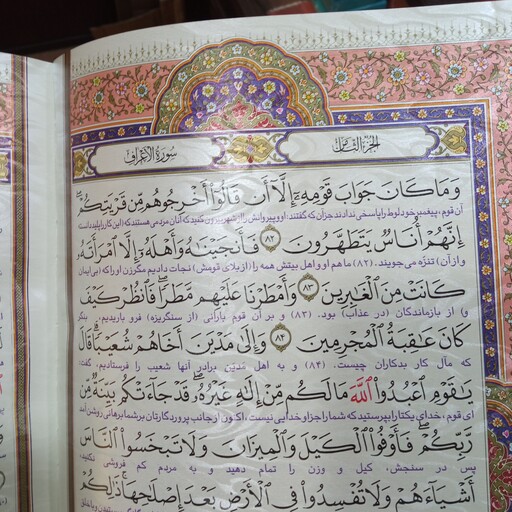 الجزء الثامن
سورة الأعراف
وَمَا كَانَ جَوَابَ قَوْمِهِ إِلَّا أَنْ قَالُوا أَخْرِجُوهُمْ مِنْ قَرْيَتِكُمْ
آن قوم، پیغمبر خود لوط را پاسخی ندادند جز آن که گفتند: او و پیروانش را از شهر بیرون کنید که آنان مردمی هستند که (این کار را پلید دانسته
إِنَّهُمْ أُنَاسٌ يَتَطَهَّرُونَ ﴿٨٢﴾ فَأَنْجَيْنَاهُ وَأَهْلَهُ إِلَّا امْرَأَتَهُ
و از آن) تنزّه می‌جویند. (۸۲) ما هم او و اهل بیتش همه را (از بلای قومش) نجات دادیم مگر زن او را که (بی ایمان
كَانَتْ مِنَ الْغَابِرِينَ ﴿٨٣﴾ وَأَمْطَرْنَا عَلَيْهِمْ مَطَرًا فَانْظُرْ كَيْفَ
و) از بازماندگان (در عذاب) بود. (۸۳) و بر آن قوم بارانی (از سنگریزه) فرو باریدیم، بنگر
كَانَ عَاقِبَةُ الْمُجْرِمِينَ ﴿٨٤﴾ وَإِلَىٰ مَدْيَنَ أَخَاهُمْ شُعَيْبًا قَالَ
که مآل کار بدکاران چیست. (۸۴) و به اهل مدین برادر آنها شعیب را فرستادیم، گفت
يَا قَوْمِ اعْبُدُوا اللَّهَ مَا لَكُمْ مِنْ إِلَٰهٍ غَيْرُهُ قَدْ جَاءَتْكُمْ بَيِّنَةٌ مِنْ
ای قوم، خدای یکتا را بپرستید که شما را جز او خدایی نیست، اکنون از جانب پروردگارتان بر شما برهانی روشن آمد
رَبِّكُمْ فَأَوْفُوا الْكَيْلَ وَالْمِيزَانَ وَلَا تَبْخَسُوا النَّاسَ
پس در سنجش، کیل و وزن را تمام دهید و به مردم کم فروشی نکنید
أَشْيَاءَهُمْ وَلَا تُفْسِدُوا فِي الْأَرْضِ بَعْدَ إِصْلَاحِهَا ذَٰلِكُمْ